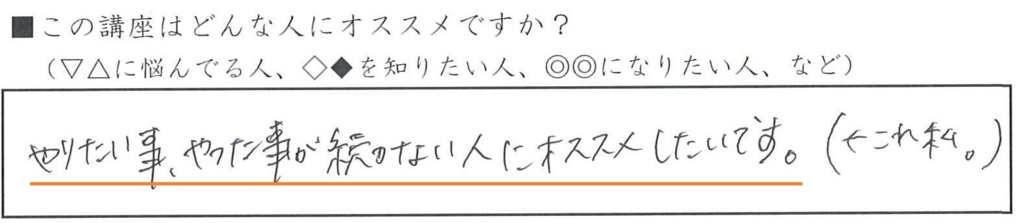 ■この講座はどんな人にオススメですか？
（▽△に悩んでる人、◇◆を知りたい人、◎◎になりたい人、など）
やりたい事、やった事が続かない人にオススメしたいです。（←これ私。）